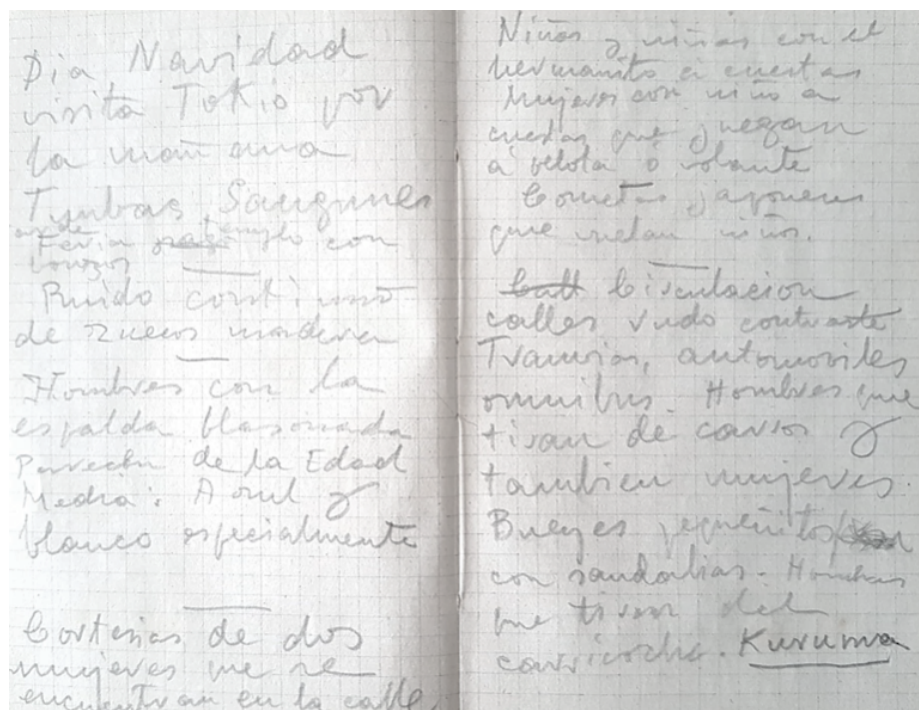 Dia Navidad
visita Tokio por
la mañana
Tumbas Sangunes
Feria templo con
Ruido continuo
de zuecos madera
Hombres con la
espalda blasonada
Parecen de la Edad
Media. Azul y
blanco especialmente
Cortesias de dos
mujeres que se
encuentran en la calle
Niños y niñas con el
hermanito a cuestas
Mujeres con niño a
cuestas que juegan
á pelota ó volante
Cometas japoneses
que vuelan niños.
Circulacion
calles rudo contraste
Tranvias, automoviles
omnibus. Hombres que
tiran de carros y
tambien mujeres.
Bueyes pequeñitos
con sandalias. Hombres
que tiran del
carricoche. Kuruma